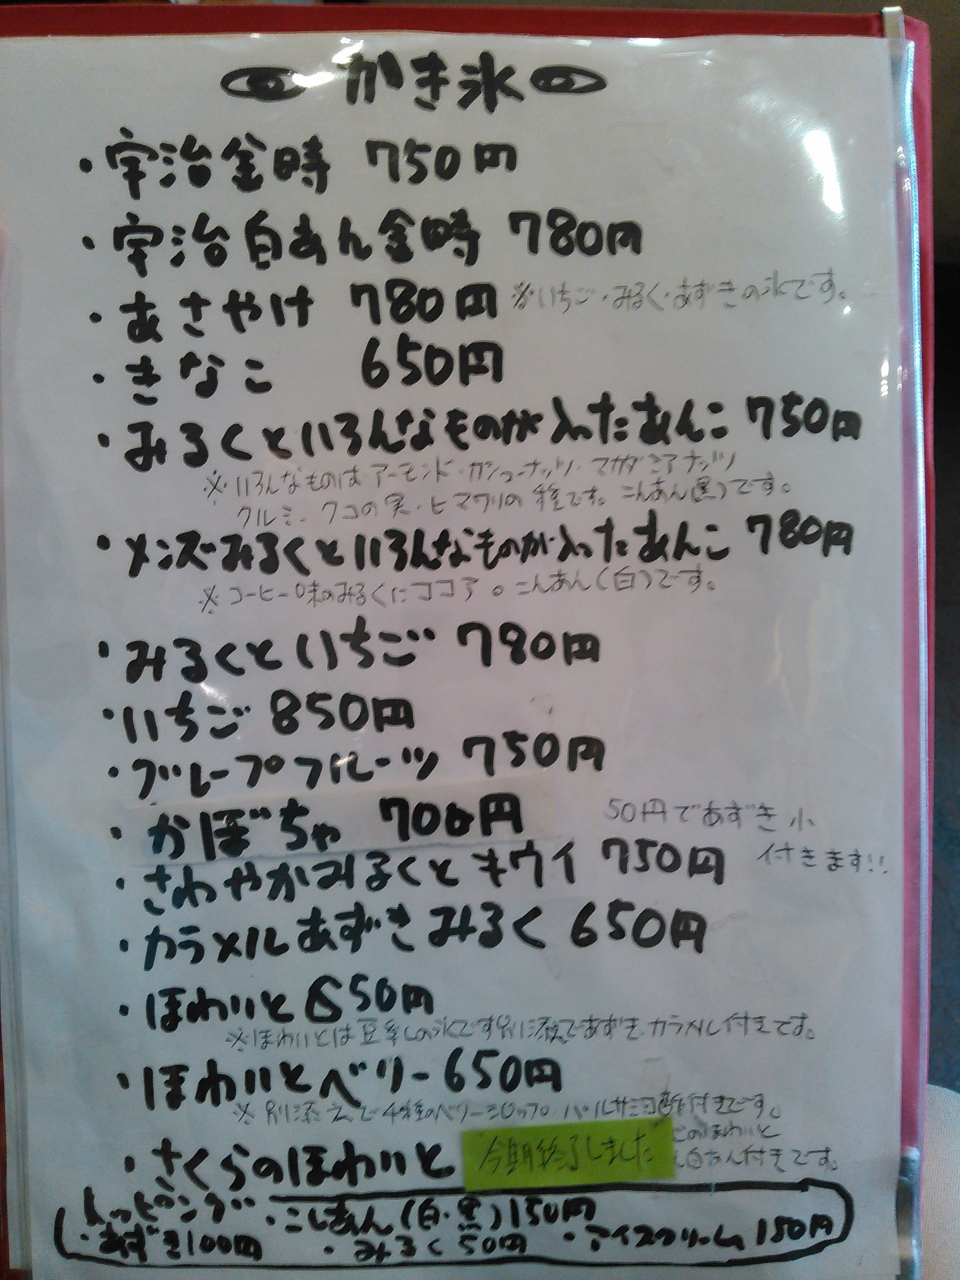 かき氷
・宇治金時 750円
・宇治白あん金時 780円
・あさやけ 780円 ※いちご・みるく・あずきの氷です。
・きなこ 650円
・みるくといろんなものが入ったあんこ 750円
※いろんなものはアーモンド・カシューナッツ・マカダミアナッツ
クルミ・クコの実・ヒマワリの種です。こしあん(黒)です。
・メンズみるくといろんなものが入ったあんこ 780円
※コーヒー味のみるくにココア。こしあん(白)です。
・みるくといちご 780円
・いちご 850円
・グレープフルーツ 750円
・かぼちゃ 700円 50円であずき小
付きます!!
・さわやかみるくとキウイ 750円
・カラメルあずきみるく 650円
・ほわいと 650円
※ほわいとは豆乳の氷です別添であずきカラメル付きです。
・ほわいとベリー 650円
※別添えで4種のベリーシロップ・バルサミコ酢付きです。
・さくらのほわいと 今期終了しました のほわいと
白あん付きです。
トッピング ・こしあん(白・黒)150円
・あずき100円 ・みるく50円 ・アイスクリーム150円